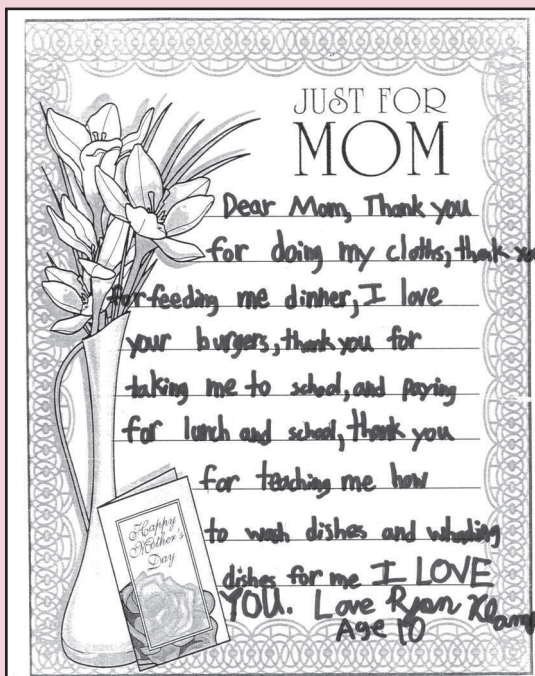 JUST FOR
MOM
Dear Mom, Thank you
for doing my cloths, thank you
for feeding me dinner, I love
your burgers, thank you for
taking me to school, and paying
for lunch and school, thank you
for teaching me how
to wash dishes and
dishes for me I LOVE
YOU. Love Ryan
Age 10
Happy
Mother's
Day